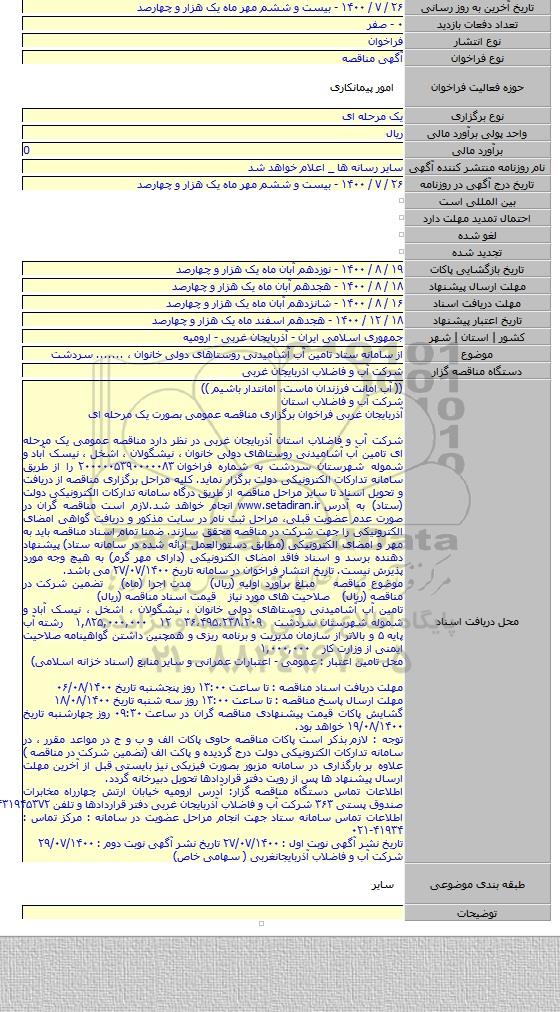 تاریخ آخرین به روز رسانی ۲۶ / ۷ / ۱۴۰۰ - بیست و ششم مهر ماه یک هزار و چهارصد
تعداد دفعات بازدید ۰ - صفر
نوع انتشار فراخوان
نوع فراخوان آگهی مناقصه
حوزه فعالیت فراخوان امور پیمانکاری
نوع برگزاری یک مرحله ای
واحد پولی برآورد مالی ریال
برآورد مالی 0
نام روزنامه منتشر کننده آگهی سایر رسانه ها _ اعلام خواهد شد
تاریخ درج آگهی در روزنامه ۲۶ / ۷ / ۱۴۰۰ - بیست و ششم مهر ماه یک هزار و چهارصد
بین المللی است
احتمال تمدید مهلت دارد
لغو شده
تجدید شده
تاریخ بازگشایی پاکات ۱۹ / ۸ / ۱۴۰۰ - نوزدهم آبان ماه یک هزار و چهارصد
مهلت ارسال پیشنهاد ۱۸ / ۸ / ۱۴۰۰ - هجدهم آبان ماه یک هزار و چهارصد
مهلت دریافت اسناد ۱۶ / ۸ / ۱۴۰۰ - شانزدهم آبان ماه یک هزار و چهارصد
تاریخ اعتبار پیشنهاد ۱۸ / ۱۲ / ۱۴۰۰ - هجدهم اسفند ماه یک هزار و چهارصد
کشور | استان | شهر جمهوری اسلامی ایران - آذربایجان غربی - ارومیه
موضوع از سامانه ستاد تامین آب آشامیدنی روستاهای دولی خانوان ، ....... سردشت
دستگاه مناقصه گزار شرکت آب و فاضلاب آذربایجان غربی
محل دریافت اسناد
(( آب امانت فرزندان ماست، امانتدار باشیم ))
شرکت آب و فاضلاب استان
آذربایجان غربی فراخوان برگزاری مناقصه عمومی بصورت یک مرحله ای
شرکت آب و فاضلاب استان آذربایجان غربی در نظر دارد مناقصه عمومی یک مرحله
ای تامین آب آشامیدنی روستاهای دولی خانوان ، نیشگولان ، اشخل ، نیسک آباد و
شموله شهرستان سردشت به شماره فراخوان ۲۰۰۰۰۰۵۳۹۰۰۰۰۰۸۳ را از طریق
سامانه تدارکات الکترونیکی دولت برگزار نماید. کلیه مراحل برگزاری مناقصه از دریافت
و تحویل اسناد تا سایر مراحل مناقصه از طریق درگاه سامانه تدارکات الکترونیکی دولت
(ستاد) به آدرس www.setadiran.ir انجام خواهد شد.لازم است مناقصه گران در
صورت عدم عضویت قبلی، مراحل ثبت نام در سایت مذکور و دریافت گواهی امضای
الکترونیکی را جهت شرکت در مناقصه محقق سازند. ضمنا تمام اسناد مناقصه باید به
مهر و امضای الکترونیکی (مطابق دستورالعمل ارائه شده در سامانه ستاد) پیشنهاد
دهنده برسد و اسناد فاقد امضای الکترونیکی (دارای مهر گرم) به هیچ وجه مورد
پذیرش نیست. تاریخ انتشار فراخوان در سامانه تاریخ ۲۷/۰۷/۱۴۰۰ می باشد.
موضوع مناقصه مبلغ برآورد اولیه (ریال) مدت اجرا (ماه) تضمین شرکت در
مناقصه (ریال) صلاحیت های مورد نیاز قیمت اسناد مناقصه (ریال)
تامین آب آشامیدنی روستاهای دولی خانوان ، نیشگولان ، اشخل ، نیسک آباد و
شموله شهرستان سردشت ۳۶،۴۹۵،۲۳۸،۲۰۹ ۱۲ ۱،۸۲۵،۰۰۰،۰۰۰ رشته آب
پایه ۵ و بالاتر از سازمان مدیریت و برنامه ریزی و همچنین داشتن گواهینامه صلاحیت
ایمنی از وزارت کار ۱،۰۰۰،۰۰۰
محل تامین اعتبار : عمومی - اعتبارات عمرانی و سایر منابع (اسناد خزانه اسلامی)
مهلت دریافت اسناد مناقصه : تا ساعت ۱۳:۰۰ روز پنجشنبه تاریخ ۰۶/۰۸/۱۴۰۰
مهلت ارسال پاسخ مناقصه : تا ساعت ۱۳:۰۰ روز سه شنبه تاریخ ۱۸/۰۸/۱۴۰۰
گشایش پاکات قیمت پیشنهادی مناقصه گران در ساعت ۰۹:۳۰ روز چهارشنبه تاریخ
۱۹/۰۸/۱۴۰۰ خواهد بود.
توجه : لازم بذکر است پاکات مناقصه حاوی پاکات الف و ب و ج در مواعد مقرر ، در
سامانه تدارکات الکترونیکی دولت درج گردیده و پاکت الف (تضمین شرکت در مناقصه )
علاوه بر بارگذاری در سامانه مزبور بصورت فیزیکی نیز بایستی قبل از آخرین مهلت
ارسال پیشنهاد ها پس از رویت دفتر قراردادها تحویل دبیرخانه گردد.
اطلاعات تماس دستگاه مناقصه گزار: آدرس ارومیه خیابان ارتش چهارراه مخابرات
صندوق پستی ۳۶۳ شرکت آب و فاضلاب آذربایجان غربی دفتر قراردادها و تلفن
اطلاعات تماس سامانه ستاد جهت انجام مراحل عضویت در سامانه : مرکز تماس :
۰۲۱-۴۱۹۳۴
تاریخ نشر آگهی نوبت اول : ۲۷/۰۷/۱۴۰۰ تاریخ نشر آگهی نوبت دوم : ۲۹/۰۷/۱۴۰۰
شرکت آب و فاضلاب آذربایجانغربی ( سهامی خاص)
طبقه بندی موضوعی سایر
توضیحات